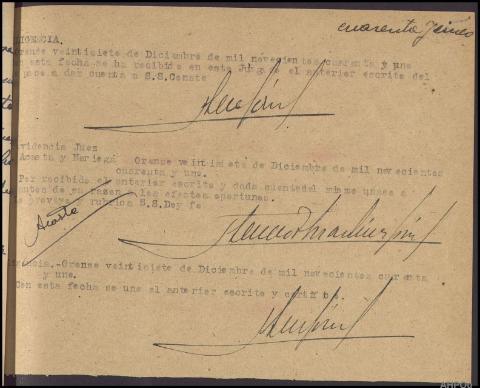 cuarenta y cinco
LIGENCIA.
Orense veintisiete de Diciembre de mil novecientos cuarenta y uno
n esta fecha se ha recibido en este Juzgado el anterior escrito del
pase a dar cuenta a S.S. Conste
videncia Juez
Acosta y Noriega Orense veintisiete de Diciembre de mil novecientos
cuarenta y uno.
Por recibido el anterior escrito y dada cuenta del mismo unase a
autos de su razon a los efectos oportunos.
o proveyo y rubrica S.S. Doy fe
Acosta
gencia.-Orense veintisiete de Diciembre de mil novecientos cuarenta
y uno.
Con esta fecha se une el anterior escrito y certifico.